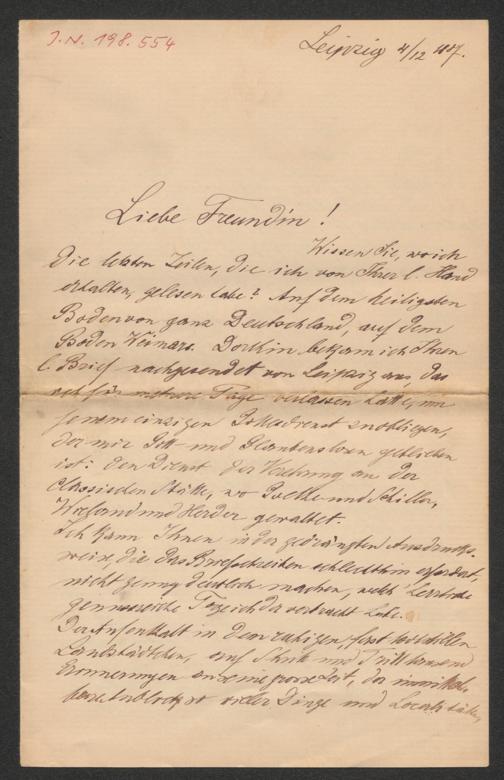 J.N. 198.554
Leipzig 4/12 1887.
Liebe Freundin!
Wissen Sie, wo ich
die letzten Zeilen, die ich von Ihrer l. Hand
erhalten, gelesen habe? Auf dem heiligsten
Boden von ganz Deutschland, auf dem
Boden Weimars. Dorthin bekam ich Ihren
l. Brief nachgesendet von Leipzig aus, das
ich für mehrere Tage verlassen hatte, um
jenem einzigen Gottesdienst zu obliegen,
der mir Gott und Glaubenslosen geblieben
ist: den Dienst der Verehrung an der
classischen Stätte, wo Goethe und Schiller,
Wieland und Herder gewaltet.
Ich kann Ihnen in der gedrängten Ausdrucks-
weise, die das Briefschreiben schlechthin erfordert,
nicht genug deutlich machen, welch
genussreiche Tage ich da verbracht habe.
Der Aufenthalt in dem ruhigen, fast
Landstädtchen, auf Schritt und Tritt
Erinnerungen an jene grosse Zeit, der
Anblick so vieler Dinge und